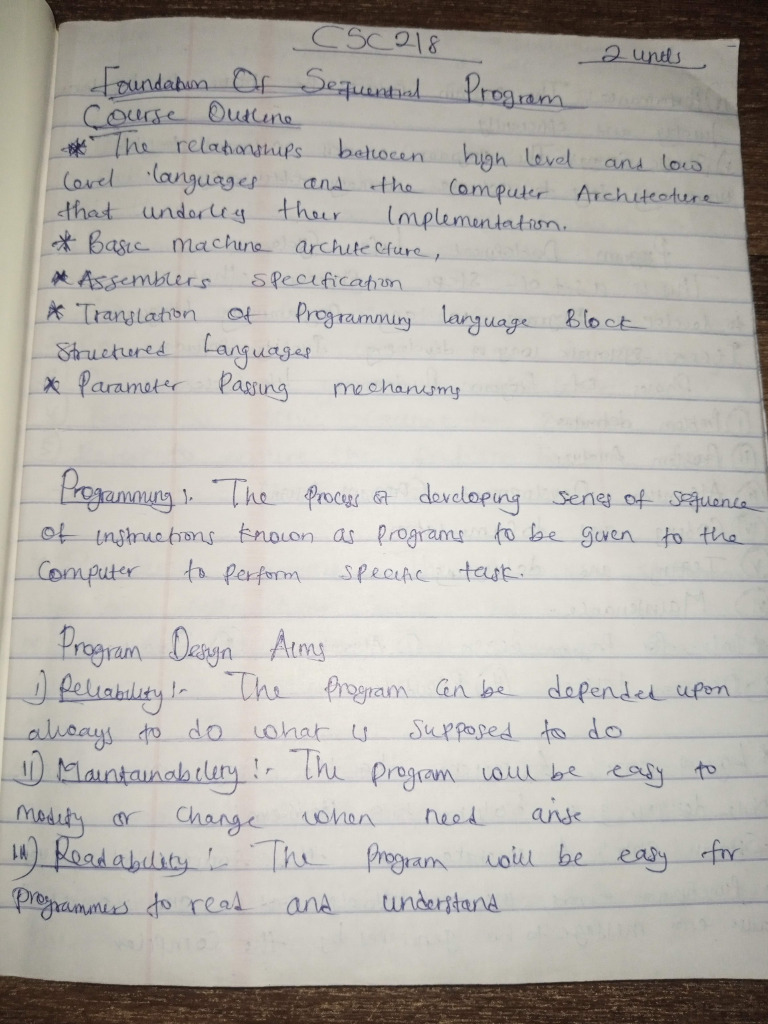 CSC218
2 units
Foundation Of Sequential Program
Course Outline
* The relationships between high level and low
level languages and the Computer Architecture
that underley their Implementation.
* Basic machine architecture,
* Assemblers specification
* Translation of Programming language Block
Structured Languages
* Parameter Passing mechanisms
Programming:- The process of developing series of sequence
of instructions known as programs to be given to the
Computer to perform specific task.
Program Design Aims
i) Reliability:- The Program Can be depended upon
always to do what is supposed to do
ii) Maintainability:- The program will be easy to
modify or change when need arise
iii) Readability:- The Program will be easy for
programmers to read and understand